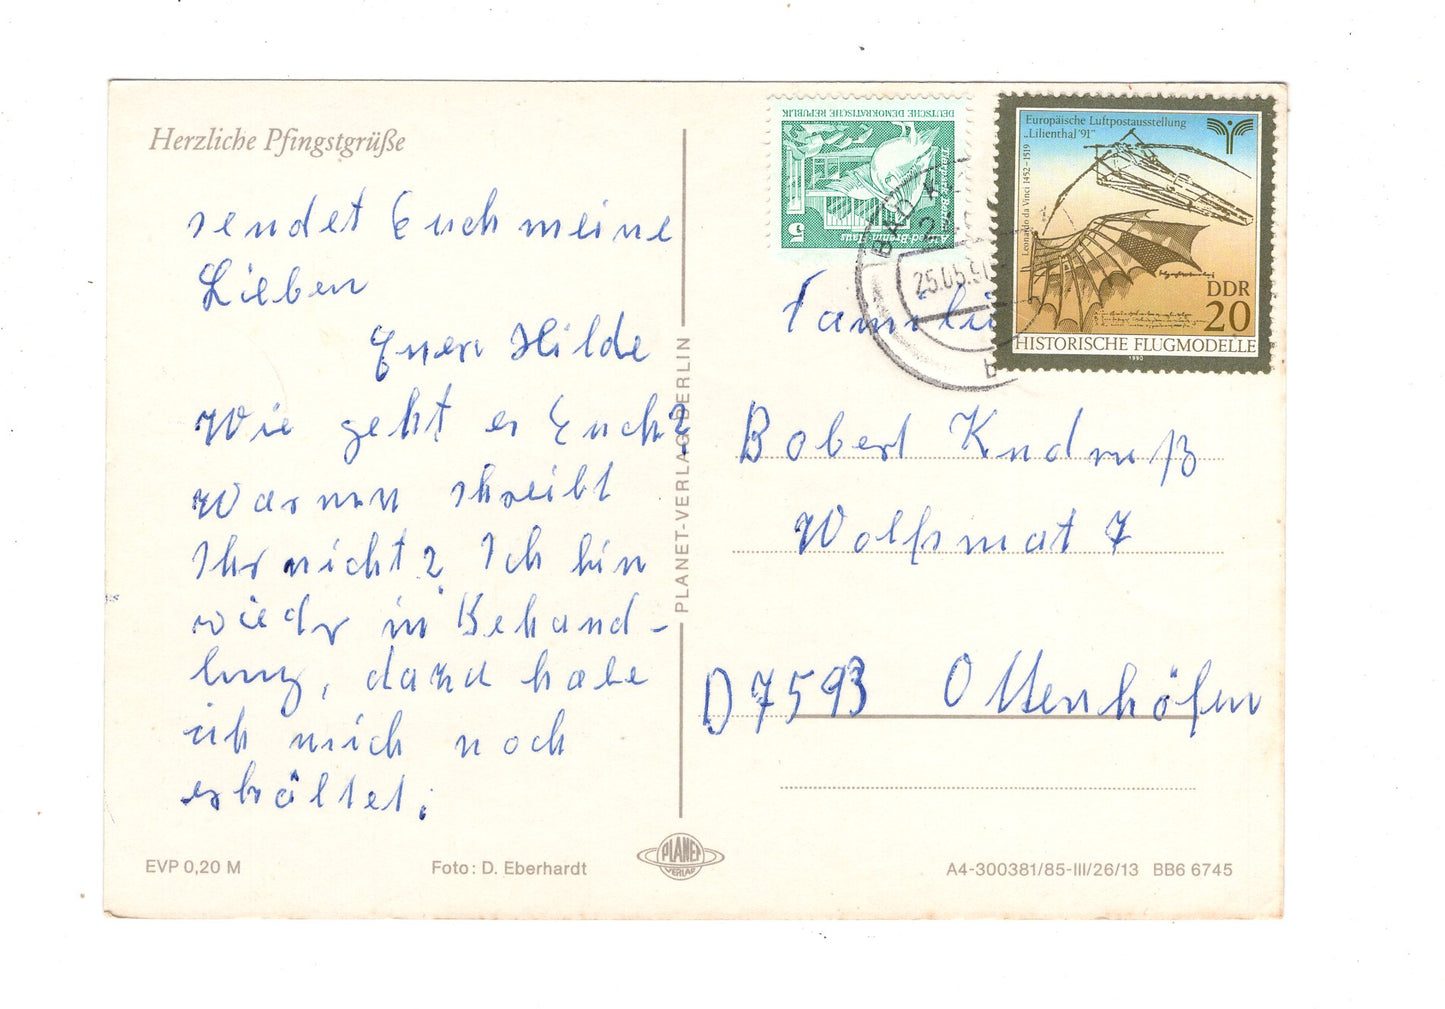 Herzliche Pfingstgrüße
sendet Euch meine
Lieben
Euere Hilde
Wie geht es Euch?
Warum schreibt
Ihr nicht? Ich bin
wieder in Behand-
lung, dazu habe
ich mich noch
erkältet.
EVP 0,20 M
Foto: D. Eberhardt
PLANET-VERLAG BERLIN
PLANET
VERLAG
DEUTSCHE DEMOKRATISCHE REPUBLIK
5
BAD
25.05.91
Europäische Luftpostausstellung
„Lilienthal '91"
Leonardo da Vinci 1452-1519
DDR
20
HISTORISCHE FLUGMODELLE
1990
Familie
D 7593 Ottenhöfen
A4-300381/85-III/26/13 BB6 6745